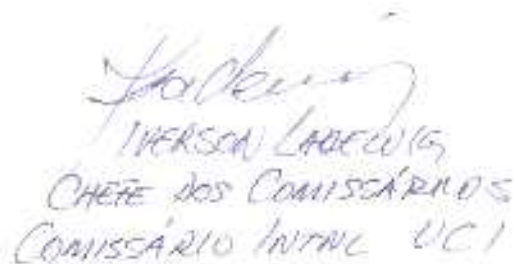 IVERSON LADEWIG
CHEFE DOS COMISSÁRIOS
COMISSÁRIO INTNL UCI